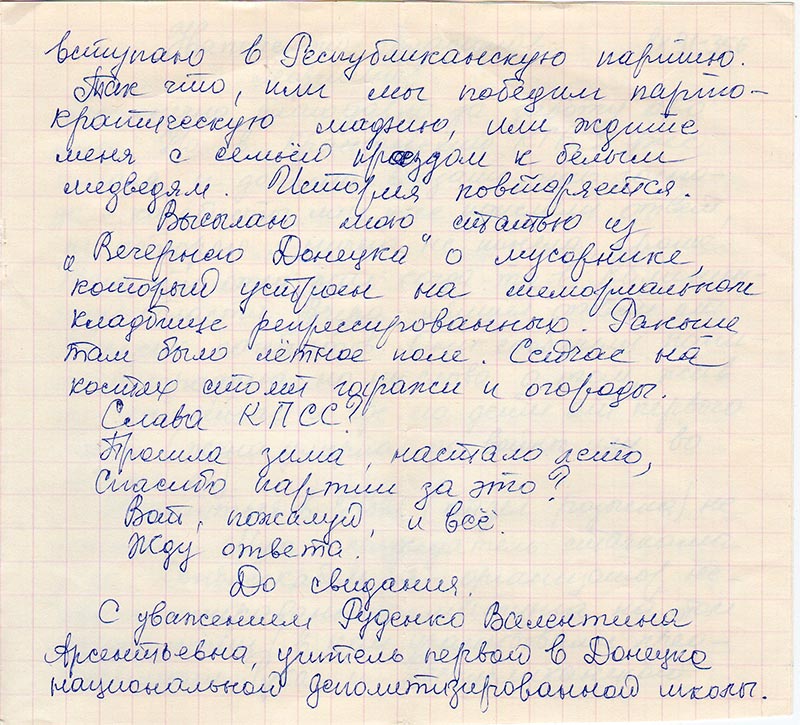 вступаю в Республиканскую партию.
Так что, или мы победим парто-
кратическую мафию, или ждите
меня с семьёй проездом к белым
медведям. История повторяется.
Высылаю мою статью из
„Вечернего Донецка" о мусорнике,
который устроен на мемориальном
кладбище репрессированных. Раньше
там было лётное поле. Сейчас на
костях стоят гаражи и огороды.
Слава КПСС?
Прошла зима, настало лето,
Спасибо партии за это?
Вот, пожалуй, и всё.
Жду ответа.
До свидания.
С уважением Руденко Валентина
Арсентьевна, учитель первой в Донецке
национальной деполитизированной школы.